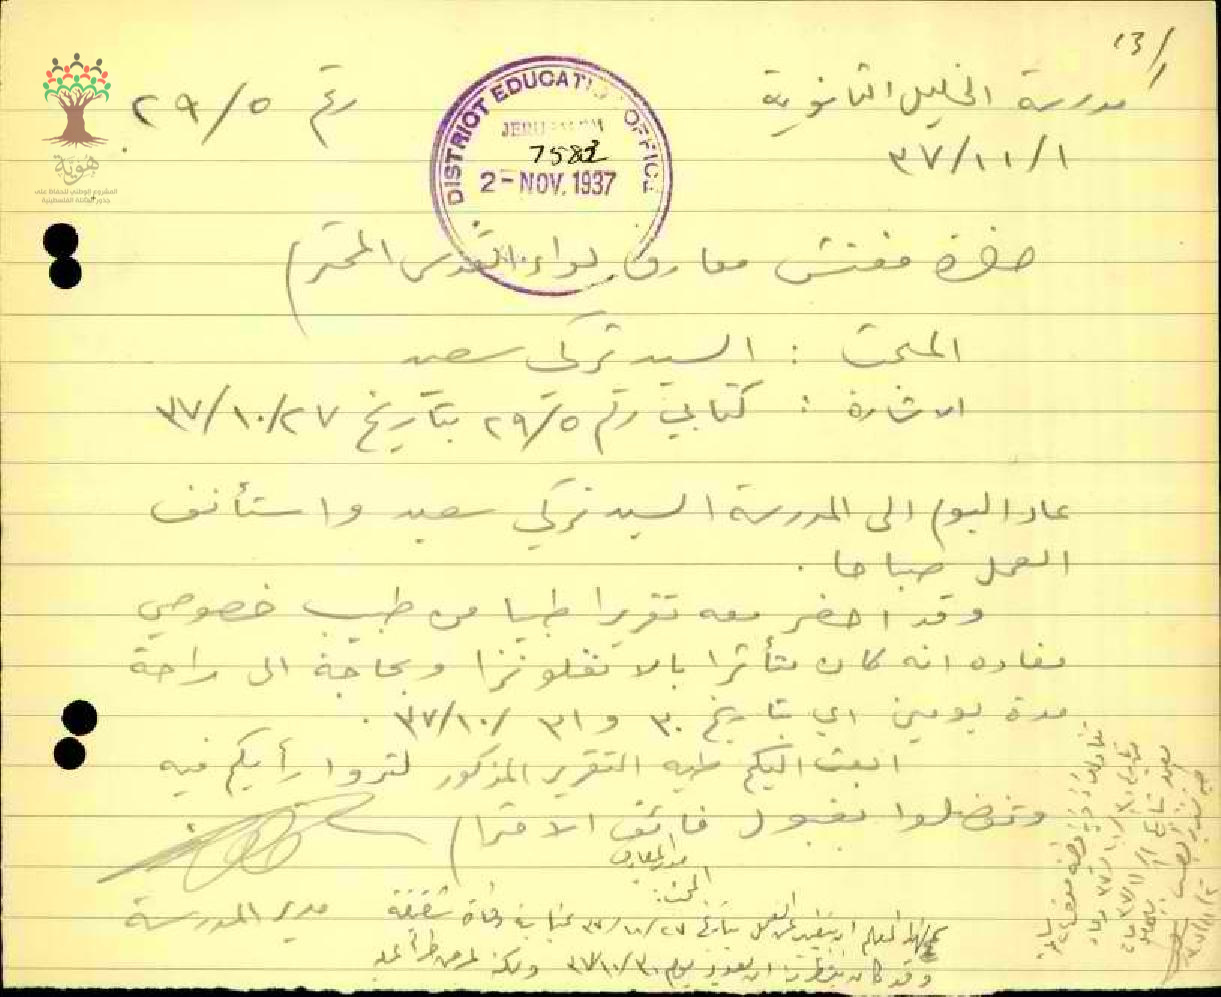 ١٣/١
مدرسة الخليل الثانوية
رقم ٢٩/٥
٣٧/١١/١
DISTRICT EDUCATION OFFICE
JERUSALEM
7582
2-NOV.1937
هوية
المشروع الوطني للحفاظ على
جذور العائلة الفلسطينية
حضرة مفتش معارف لواء القدس المحترم
المبحث : السيد تركي سعيد
الاشارة : كتابي رقم ٢٩/٥ بتاريخ ٣٧/١٠/٢٧
عاد اليوم الى المدرسة السيد تركي سعيد واستأنف
العمل صباحا .
وقد احضر معه تقريرا طبيا من طبيب خصوصي
مفاده انه كان متأثرا بالانفلونزا وبحاجة الى راحة
مدة يومين اي بتاريخ ٣٠ و ٣١ /٣٧/١٠ .
ابعث اليكم طيه التقرير المذكور لتروا رأيكم فيه
وتفضلوا بقبول فائق الاحترام
مدير المدرسة
مدير المعارف
المعلم عن العمل بتاريخ ٣٧/١٠/٢٧ وفاة شقيقة
وقد كان ان يعود يوم ٣٧/١٠/٣٠ ولكن لمرض